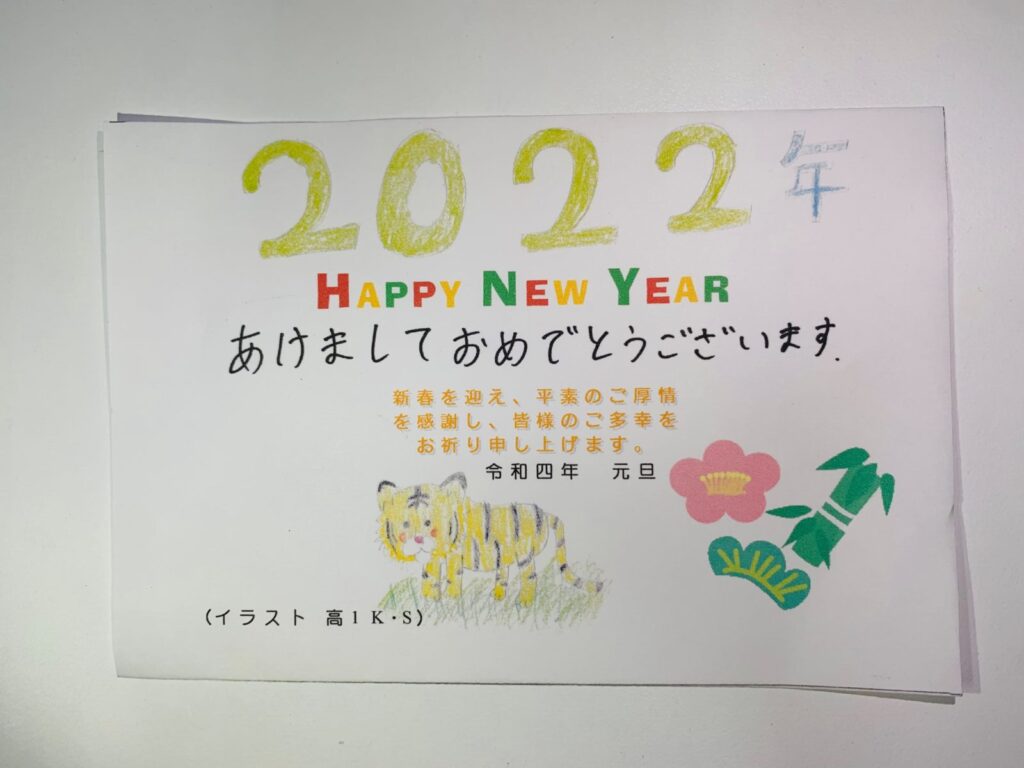 2022年
HAPPY NEW YEAR
あけましておめでとうございます.
新春を迎え、平素のご厚情
を感謝し、皆様のご多幸を
お祈り申し上げます。
令和四年 元旦
(イラスト 高1 K・S)